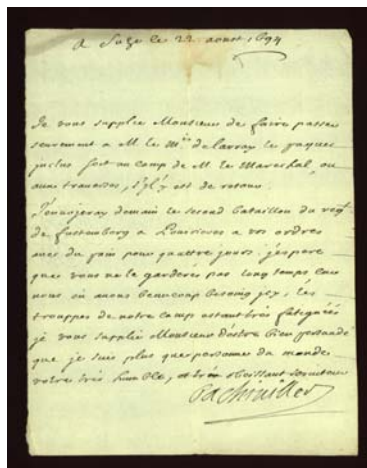 a Suze le 22 aoust 1694
Je vous supplie Monsieur de faire passer
seurement a M le Mis de larray le paquet
inclus soit au camp de M le Mareschal, ou
aux travaux, s'il y est de retour.
J'envoyeray demain le second bataillon du regt
de furstemberg a a vos ordres
avec du pain pour quattre jours, j'espere
que vous ne le garderés pas long temps car
nous en avons beaucoup besoing icy, les
trouppes de notre camp estant trés fatiguées
je vous supplie Monsieur d'estre bien persuadé
que je suis plus que personne du monde
vostre trés humble, et trés obeissant serviteur